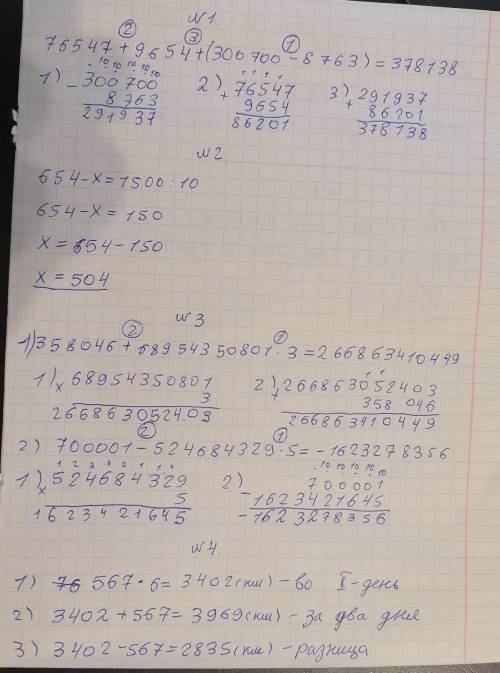 №1.
② ③ ①
76547 + 9654 + (300 700 - 8 763) = 378138
1) 2) 3)
. 10 10 10 10 10
1 1 1 1
- 300 700 + 76547 + 291937
8 763 9654 86201
291937 86201 378138
№2
654 - x = 1500 : 10
654 - x = 150
x = 654 - 150
x = 504
№3
② ①
1) 358046 + 68954350801 · 3 = 266863410449
1) × 68954350801 2) + 266863052403
3 358 046
266863052403 266863410449
② ①
2) 700001 - 524684329 · 5 = -1623278356
1) 2)
× 524684329 - 700001
5 1623421645
1623421645 -1623278356
№4.
1) 567 · 6 = 3402 (км) - во II - день
2) 3402 + 567 = 3969 (км) - за два дня
3) 3402 - 567 = 2835 (км) - разница